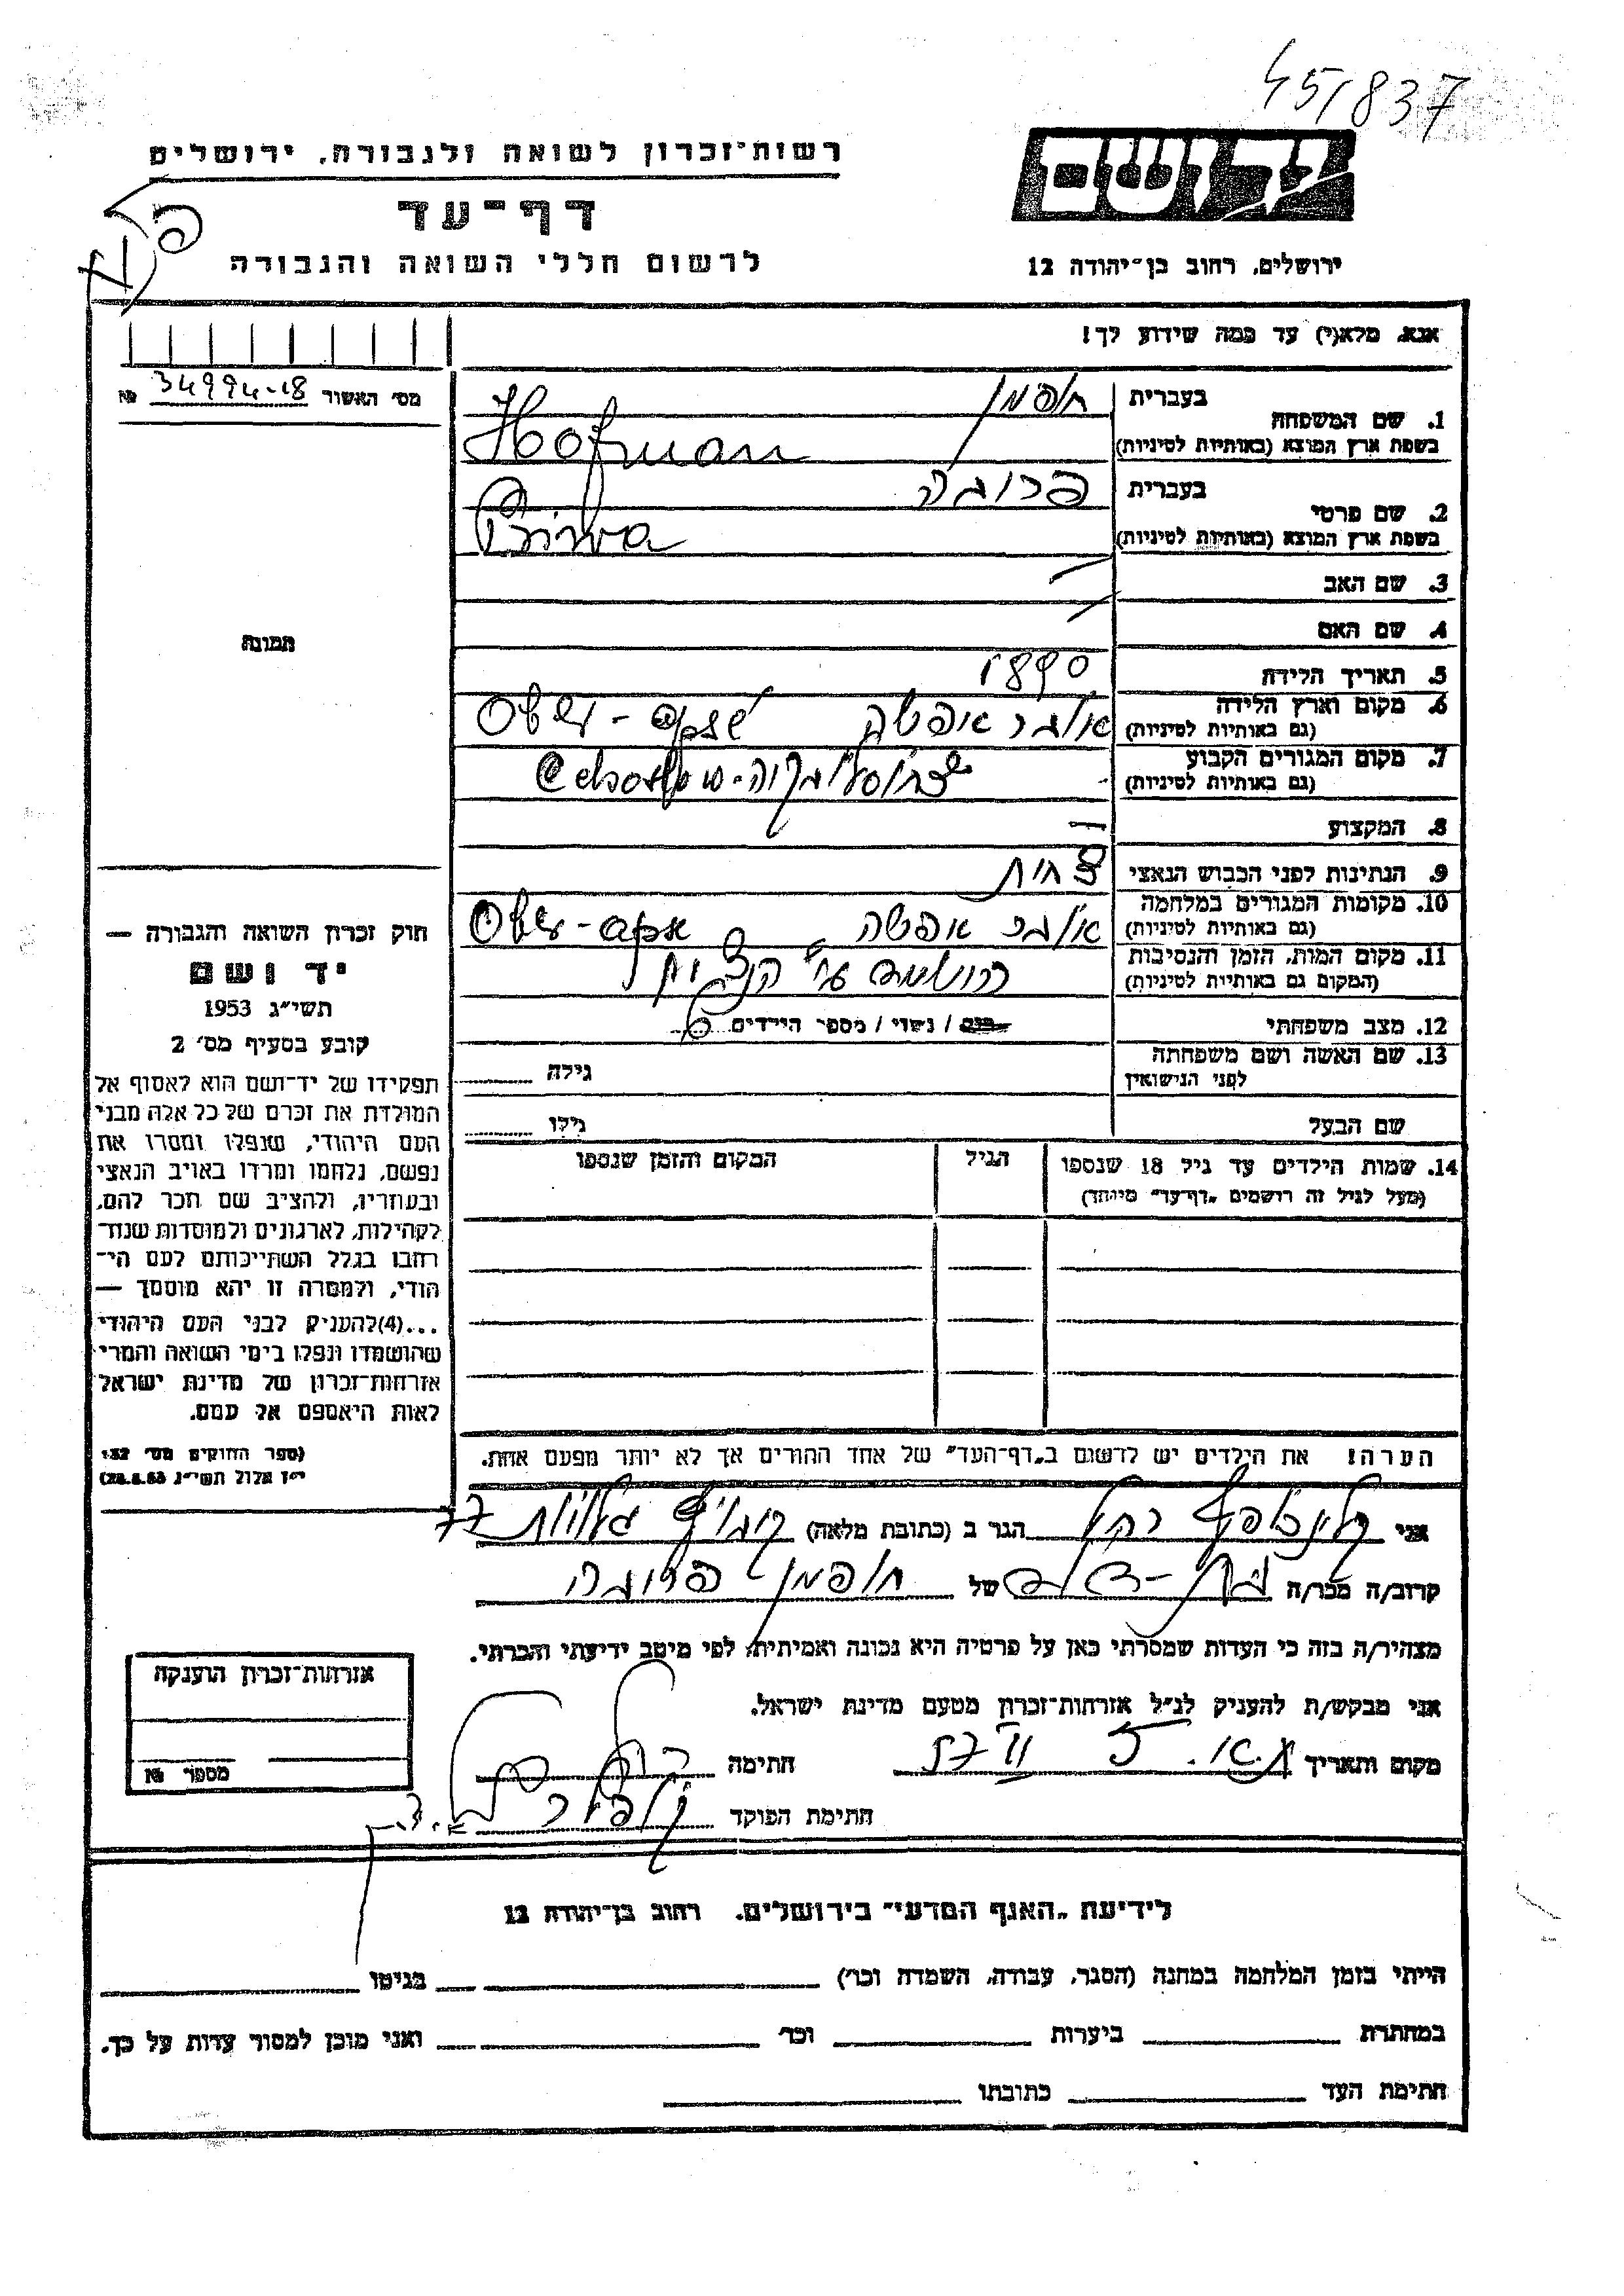 45/837
רשות־זכרון לשואה ולגבורה, ירושלים
דף־עד
לרשום חללי השואה והגבורה
יד ושם
ירושלים, רחוב בן־יהודה 12
אנא, מלא(י) עד כמה שידוע לך!
מס׳ האשור 34994-18 №
1. שם המשפחה בעברית הופמן
בשפת ארץ המוצא (באותיות לטיניות) Hofman
2. שם פרטי בעברית פרומה
בשפת ארץ המוצא (באותיות לטיניות)
3. שם האב
4. שם האם
5. תאריך הלידה 1890
6. מקום וארץ הלידה
(גם באותיות לטיניות)
7. מקום המגורים הקבוע
(גם באותיות לטיניות)
8. המקצוע —
9. הנתינות לפני הכבוש הנאצי
10. מקומות המגורים במלחמה
(גם באותיות לטיניות)
11. מקום המות, הזמן והנסיבות
(המקום גם באותיות לטיניות)
12. מצב משפחתי רווק / נשוי / מספר הילדים 6
13. שם האשה ושם משפחתה
לפני הנישואין גילה
שם הבעל גילו
14. שמות הילדים עד גיל 18 שנספו הגיל המקום והזמן שנספו
(מעל לגיל זה רושמים „דף־עד” מיוחד)
תמונה
חוק זכרון השואה והגבורה —
יד ושם
תשי״ג 1953
קובע בסעיף מס׳ 2
תפקידו של יד־ושם הוא לאסוף אל
המולדת את זכרם של כל אלה מבני
העם היהודי, שנפלו ומסרו את
נפשם, נלחמו ומרדו באויב הנאצי
ובעוזריו, ולהציב שם וזכר להם,
לקהילות, לארגונים ולמוסדות שנח־
רבו בגלל השתייכותם לעם הי־
הודי, ולמטרה זו יהא מוסמך —
...(4)להעניק לבני העם היהודי
שהושמדו ונפלו בימי השואה והמרי
אזרחות־זכרון של מדינת ישראל
לאות היאספם אל עמם.
(ספר החוקים מס׳ 132
י״ז אלול תשי״ג 28.8.53)
הערה! את הילדים יש לרשום ב„דף־העד” של אחד ההורים אך לא יותר מפעם אחת.
אני רחל הגר ב (כתובת מלאה) גלויות 77
קרוב/ה מכר/ה של הופמן פרומה
מצהיר/ה בזה כי העדות שמסרתי כאן על פרטיה היא נכונה ואמיתית, לפי מיטב ידיעתי והכרתי.
אני מבקש/ת להעניק לנ״ל אזרחות־זכרון מטעם מדינת ישראל.
מקום ותאריך חתימה
חתימת הפוקד
אזרחות־זכרון הוענקה
מספר №
לידיעת „האגף המדעי” בירושלים, רחוב בן־יהודה 12
הייתי בזמן המלחמה במחנה (הסגר, עבודה, השמדה וכר׳) בגיטו
במחתרת ביערות וכר׳ ואני מוכן למסור עדות על כך.
חתימת העד כתובתו